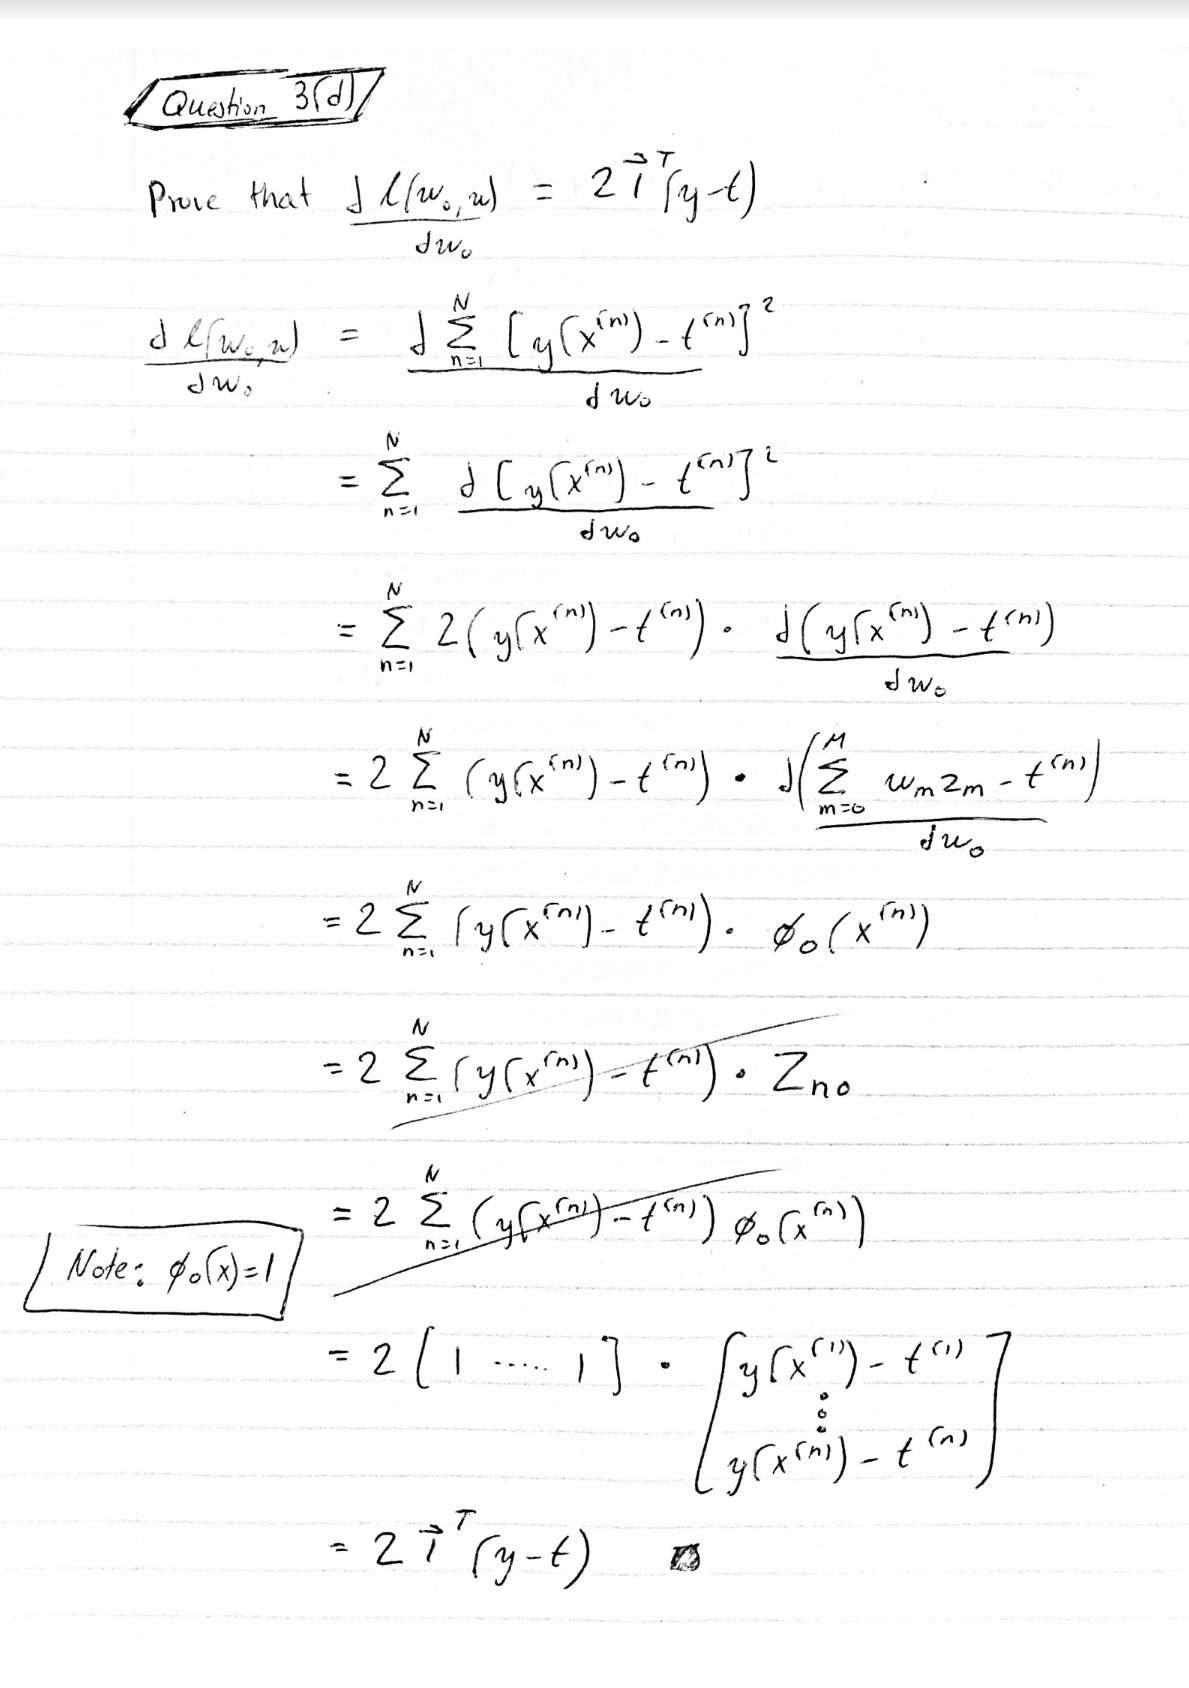 Question 3(d)
Prove that d l(w₀, w) / dw₀ = 2 1⃗ᵀ(y-t)
d l(w₀, w) / dw₀ = d Σ_{n=1}^{N} [y(x⁽ⁿ⁾) - t⁽ⁿ⁾]² / dw₀
= Σ_{n=1}^{N} d [y(x⁽ⁿ⁾) - t⁽ⁿ⁾]² / dw₀
= Σ_{n=1}^{N} 2(y(x⁽ⁿ⁾) - t⁽ⁿ⁾) · d(y(x⁽ⁿ⁾) - t⁽ⁿ⁾) / dw₀
= 2 Σ_{n=1}^{N} (y(x⁽ⁿ⁾) - t⁽ⁿ⁾) · d(Σ_{m=0}^{M} w_m z_m - t⁽ⁿ⁾) / dw₀
= 2 Σ_{n=1}^{N} (y(x⁽ⁿ⁾) - t⁽ⁿ⁾) · ϕ₀(x⁽ⁿ⁾)
= 2 Σ_{n=1}^{N} (y(x⁽ⁿ⁾) - t⁽ⁿ⁾) · Z_{n0}
= 2 Σ_{n=1}^{N} (y(x⁽ⁿ⁾) - t⁽ⁿ⁾) ϕ₀(x⁽ⁿ⁾)
Note: ϕ₀(x)=1
= 2 [1 ..... 1] · [y(x⁽¹⁾) - t⁽¹⁾
⋮
y(x⁽ⁿ⁾) - t⁽ⁿ⁾]
= 2 1⃗ᵀ(y-t)